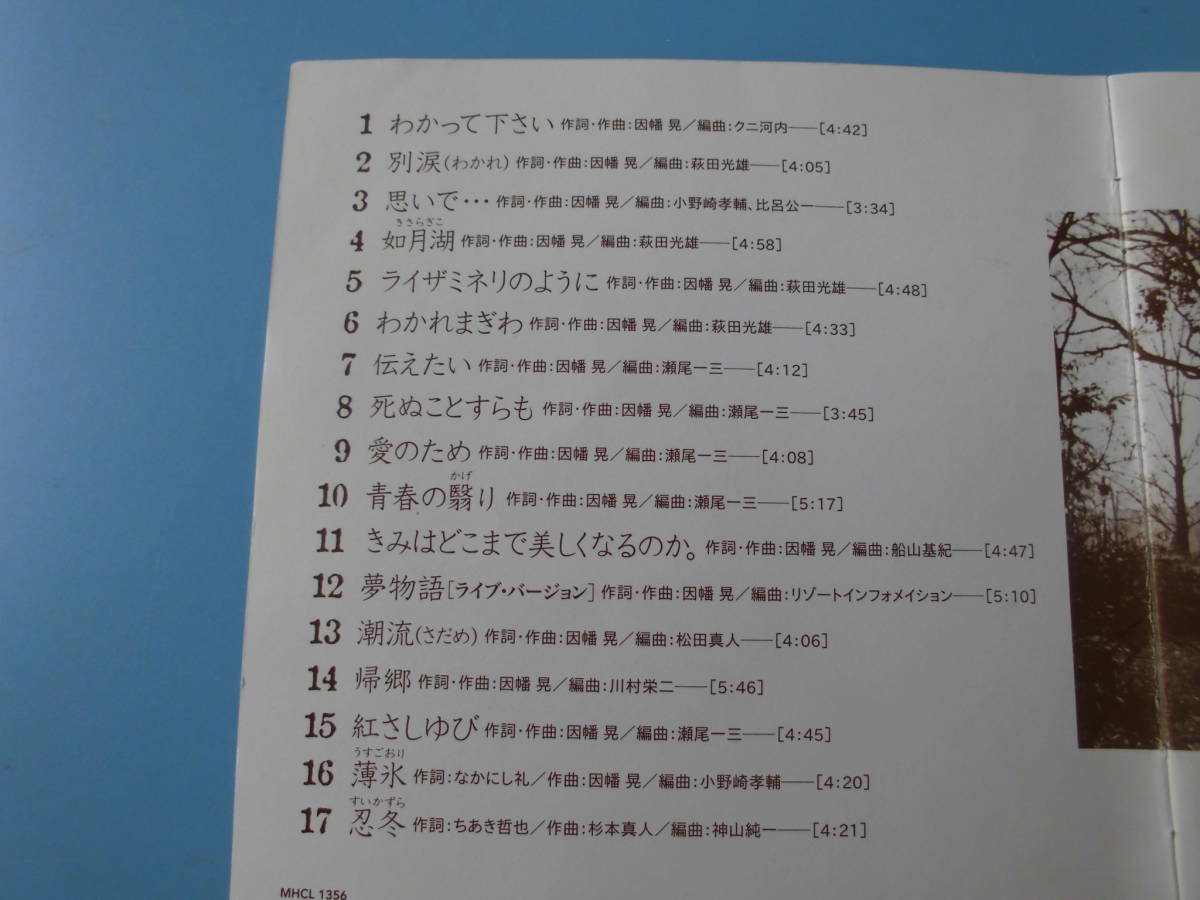 1 わかって下さい 作詞・作曲：因幡 晃／編曲：クニ河内──[4:42]
2 別涙（わかれ） 作詞・作曲：因幡 晃／編曲：萩田光雄──[4:05]
3 思いで… 作詞・作曲：因幡 晃／編曲：小野崎孝輔、比呂公一──[3:34]
きさらぎこ
4 如月湖 作詞・作曲：因幡 晃／編曲：萩田光雄──[4:58]
5 ライザミネリのように 作詞・作曲：因幡 晃／編曲：萩田光雄──[4:48]
6 わかれまぎわ 作詞・作曲：因幡 晃／編曲：萩田光雄──[4:33]
7 伝えたい 作詞・作曲：因幡 晃／編曲：瀬尾一三──[4:12]
8 死ぬことすらも 作詞・作曲：因幡 晃／編曲：瀬尾一三──[3:45]
9 愛のため 作詞・作曲：因幡 晃／編曲：瀬尾一三──[4:08]
かげ
10 青春の翳り 作詞・作曲：因幡 晃／編曲：瀬尾一三──[5:17]
11 きみはどこまで美しくなるのか。 作詞・作曲：因幡 晃／編曲：船山基紀──[4:47]
12 夢物語[ライブ・バージョン] 作詞・作曲：因幡 晃／編曲：リゾートインフォメイション──[5:10]
13 潮流（さだめ） 作詞・作曲：因幡 晃／編曲：松田真人──[4:06]
14 帰郷 作詞・作曲：因幡 晃／編曲：川村栄二──[5:46]
15 紅さしゆび 作詞・作曲：因幡 晃／編曲：瀬尾一三──[4:45]
うすごおり
16 薄氷 作詞：なかにし礼／作曲：因幡 晃／編曲：小野崎孝輔──[4:20]
すいかずら
17 忍冬 作詞：ちあき哲也／作曲：杉本真人／編曲：神山純一──[4:21]
MHCL 1356